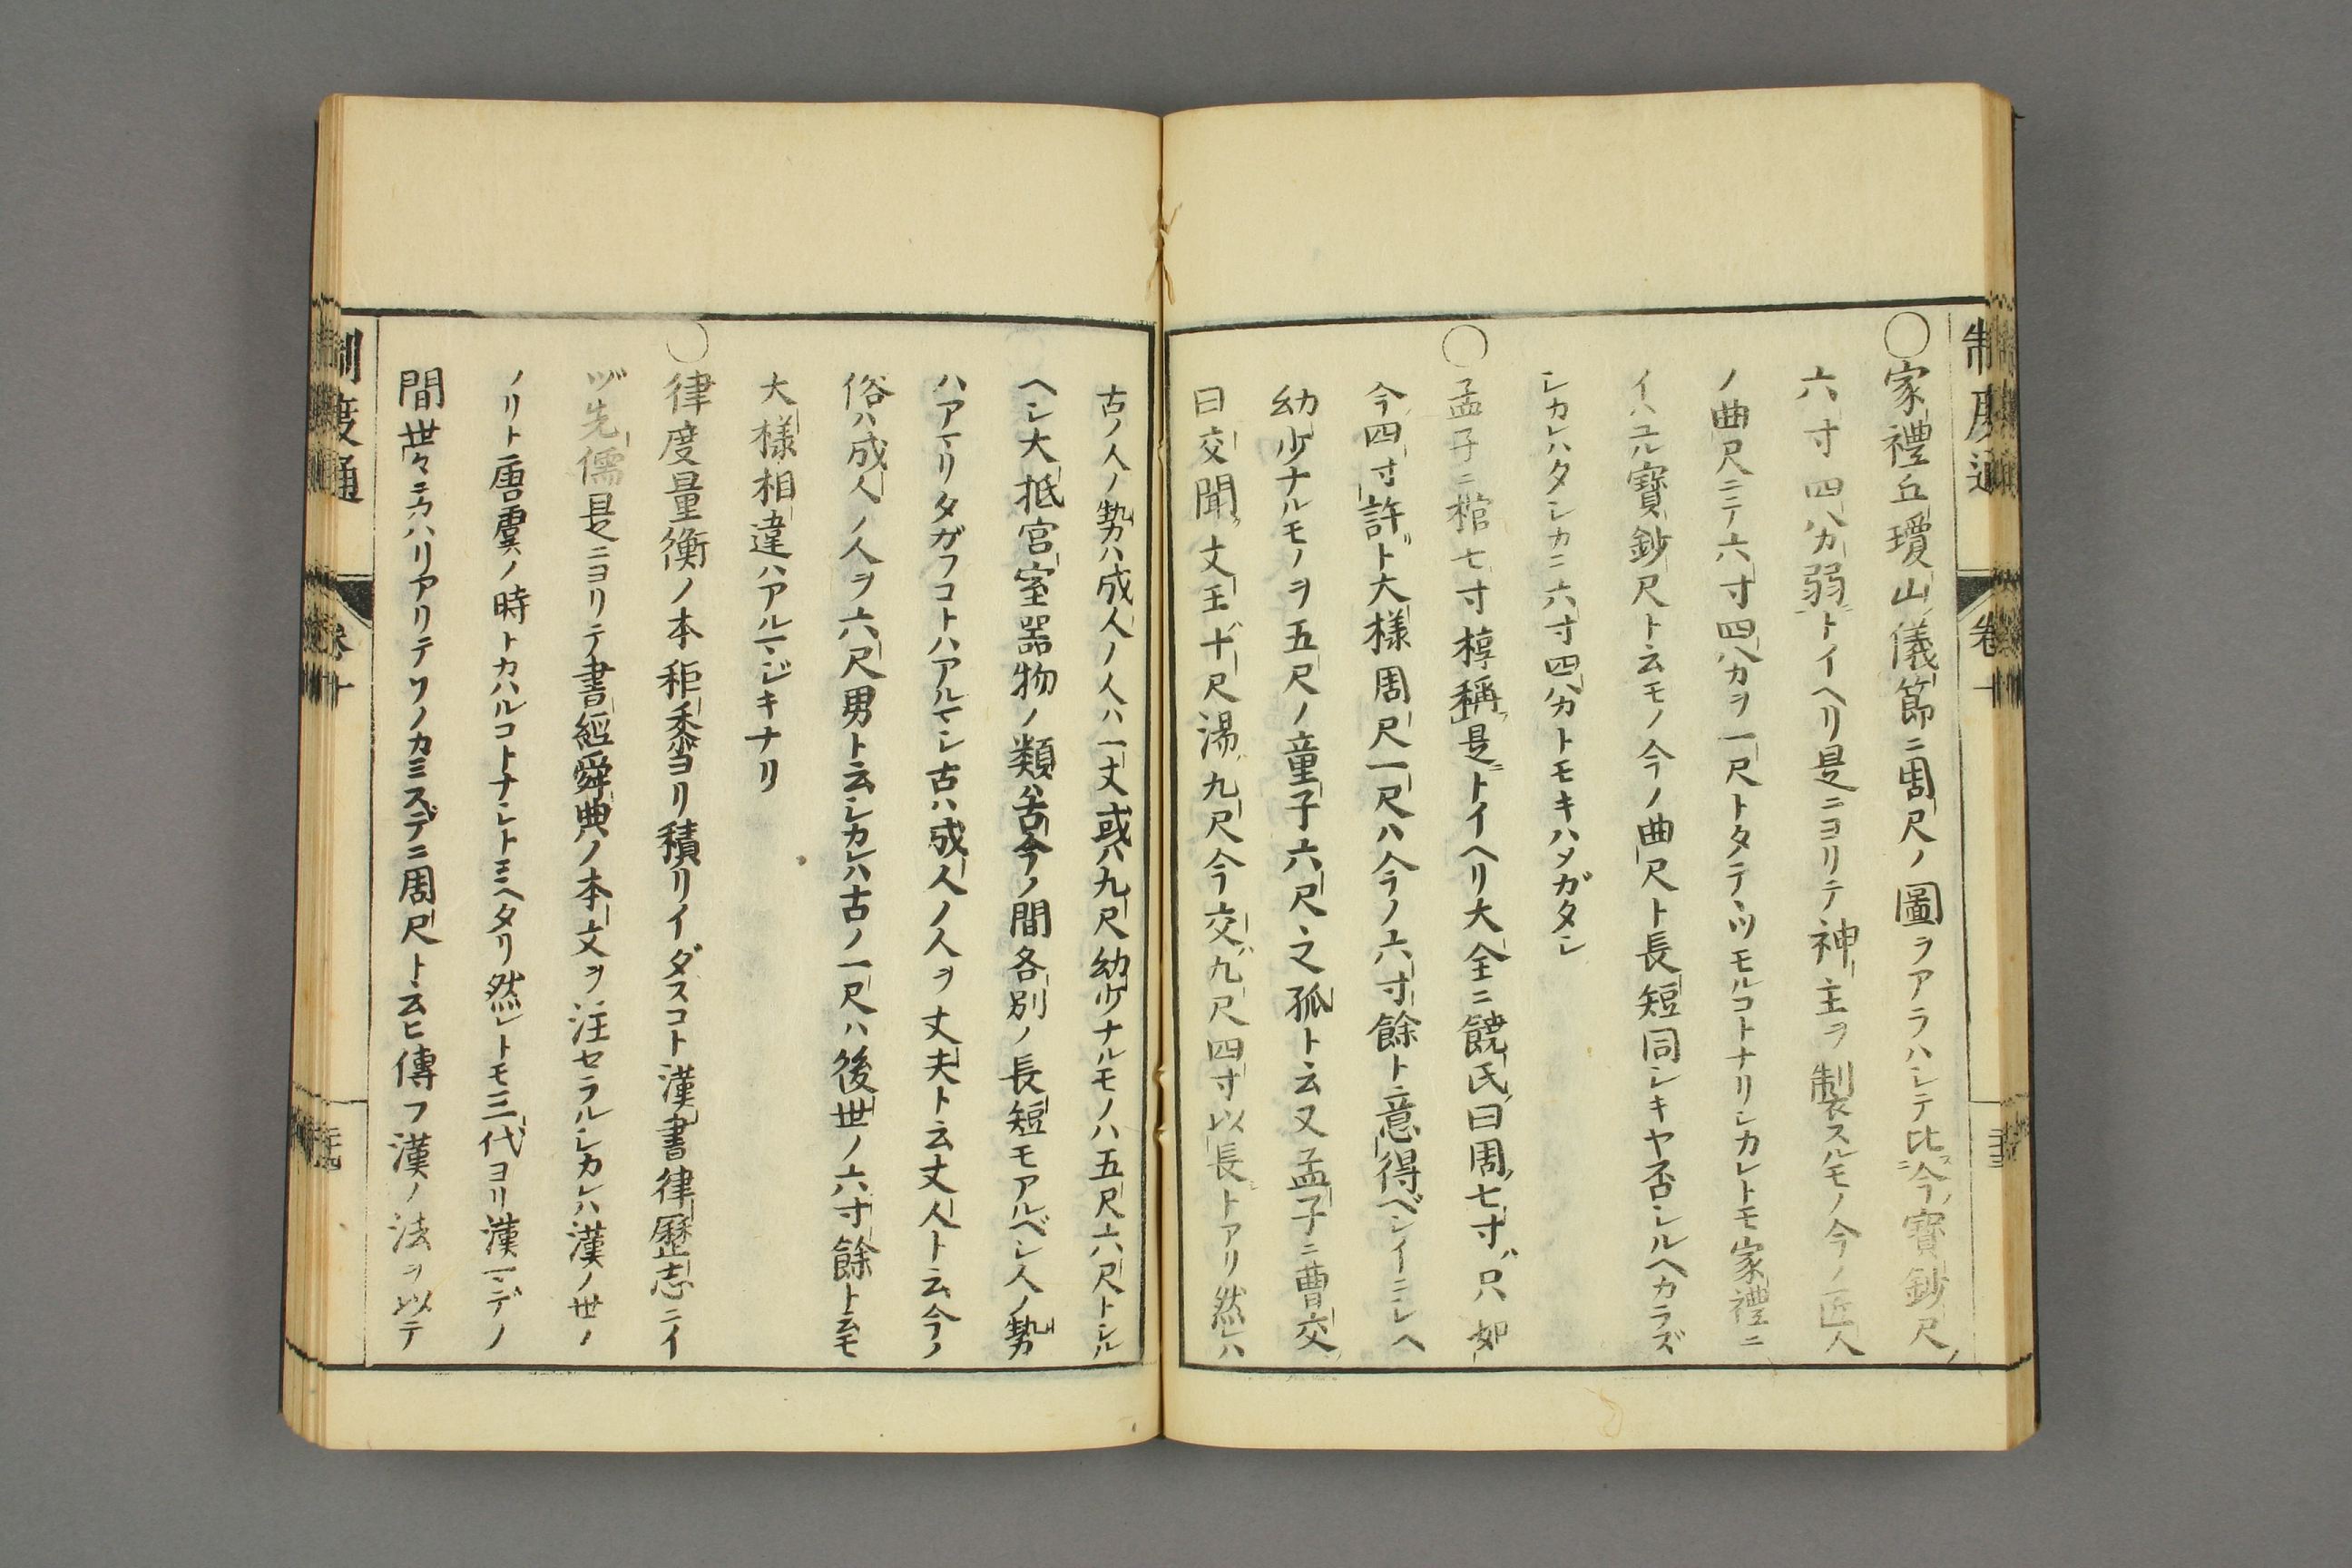 制度通
卷十
〇家禮丘瓊山儀節ニ周尺ノ圖ヲアラハシテ比今寶鈔尺ノ
六寸四八分弱トイヘリ是ニヨリテ神主ヲ製スルモノ今ノ匠人
ノ曲尺ニテ六寸四八分ヲ一尺トタテヽツモルコトナリシカレトモ家禮ニ
イハユル寶鈔尺ト云モノ今ノ曲尺ト長短同シキヤ否シルヘカラズ
シカレハタシカニ六寸四八分トモキハメガタシ
〇孟子ニ棺七寸椁稱是トイヘリ大全ニ饒氏曰周七寸只如
今四寸許ト大樣周尺一尺ハ今ノ六寸餘ト意得ベシイニシヘ
幼少ナルモノヲ五尺ノ童子六尺之孤ト云又孟子ニ曹交
曰交聞文王十尺湯九尺今交九尺四寸以長トアリ然レハ
古ノ人ノ勢ハ成人ノ人ハ一丈或ハ九尺幼少ナルモノハ五尺六尺トシル
ヘシ大抵宮室器物ノ類ハ古今ノ間各別ノ長短モアルベシ人ノ勢
ハアマリタガフコトハアルマシ古ハ成人ノ人ヲ丈夫ト云丈人ト云今ノ
俗ハ成人ノ人ヲ六尺男ト云シカレハ古ノ一尺ハ後世ノ六寸餘ト云モ
大樣相違ハアルマジキナリ
〇律度量衡ノ本秬黍ヨリ積リイダスコト漢書律歷志ニイ
ヅ先儒是ニヨリテ書經舜典ノ本文ヲ注セラルシカレハ漢ノ世ノ
ノリト唐虞ノ時トカハルコトナシトミヘタリ然レトモ三代ヨリ漢マデノ
間世々ニカハリアリテソノカミスデニ周尺ト云ヒ傳フ漢ノ法ヲ以テ
制度通
卷十